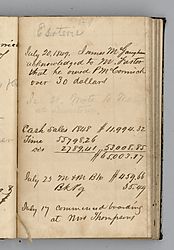 July 20, 1849, James M Vaughan
acknowledged to M. Foster
that he owed P McCormick
over 30 dollars
Cash Sales 1848 $11,994.82
Time 55798.26
2789.41 53008.85
$65,003.87
July 23 M & M Bk $459.66
Bk Pg 35.49
July 17 commenced boarding
at Mrs Thompsons